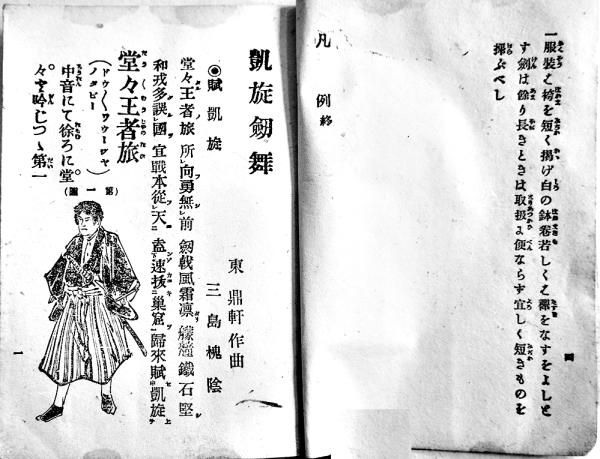 一服裝は袴を短く揚げ白の鉢卷若しくは襷をなすをよしと
す劍は餘り長きときは取扱ひ便ならず宜しく短きものを
擇ぶべし
凡例終
四
凱旋劒舞
東鼎軒作曲
三島槐陰
◉賦凱旋
堂々王者旅 所向勇無前 劒戟風霜凛 艨艟鐵石堅
和戎多誤國 宜戰本從天 盍速拔巢窟 歸來賦凱旋
堂々王者旅
(ドウ〱ワウーシヤ
ノタビー)
中音にて徐ろに堂
々を吟じつゝ第一
(第一圖)
一